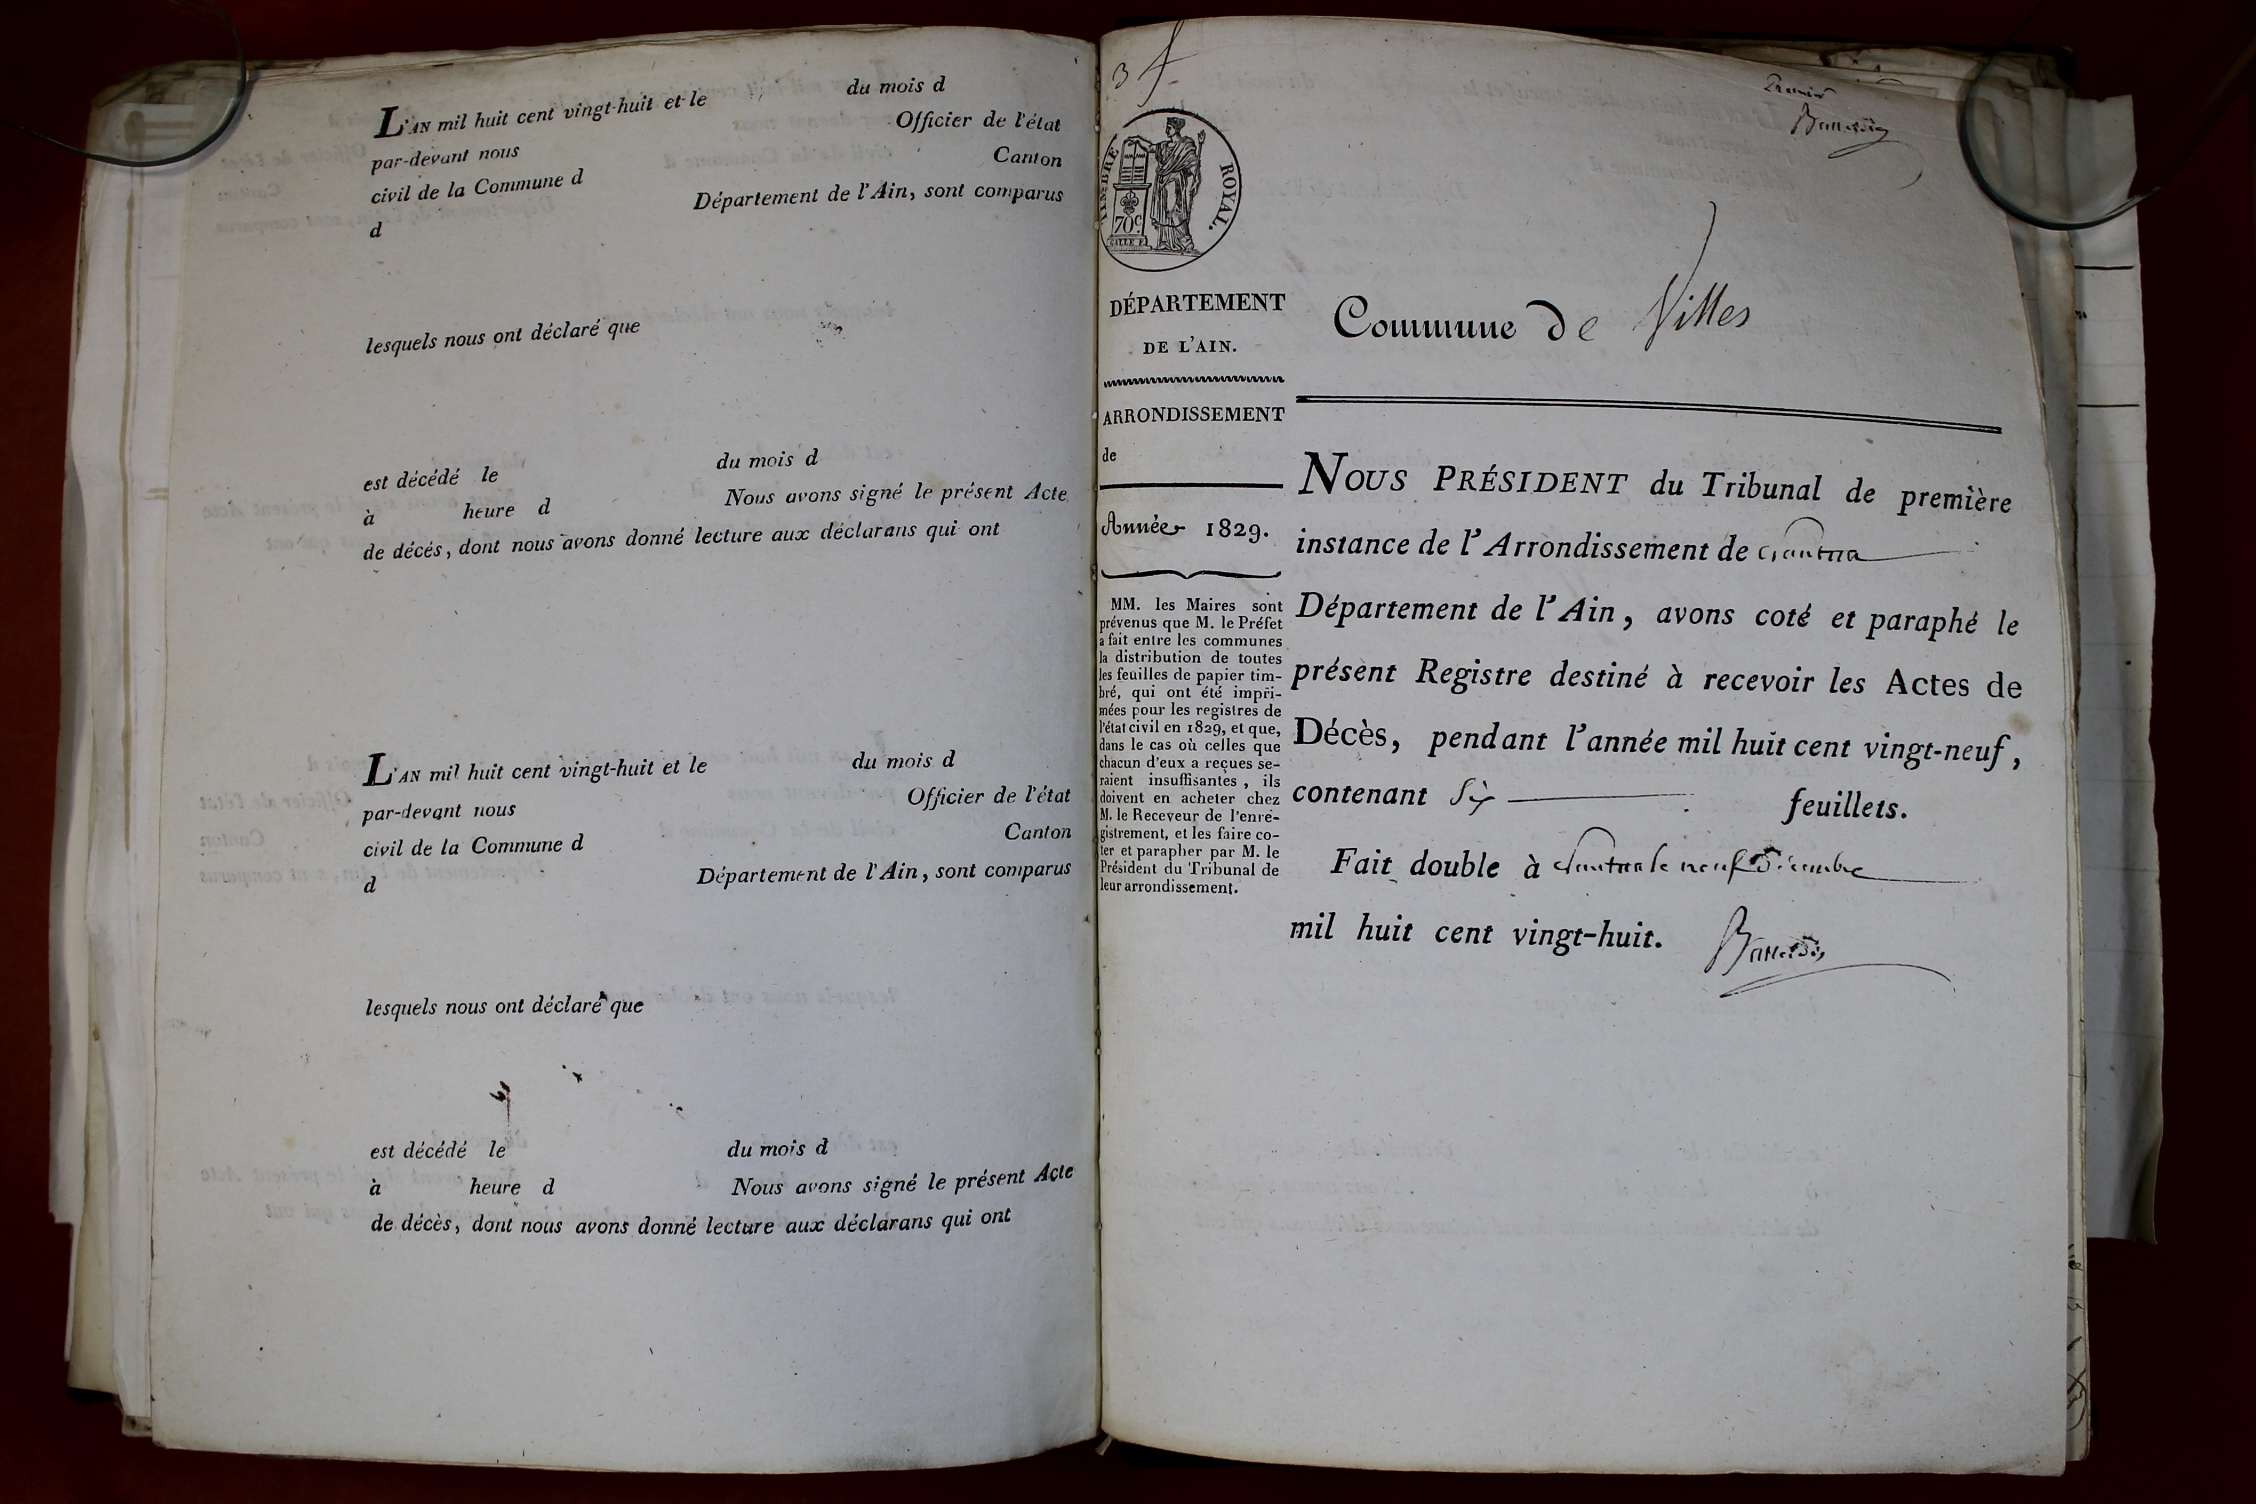 L'AN mil huit cent vingt-huit et le du mois d
par-devant nous Officier de l'état
civil de la Commune d Canton
d Département de l'Ain, sont comparus
lesquels nous ont déclaré que
est décédé le du mois d
à heure d Nous avons signé le présent Acte
de décés, dont nous avons donné lecture aux déclarans qui ont
L'AN mil huit cent vingt-huit et le du mois d
par-devant nous Officier de l'état
civil de la Commune d Canton
d Département de l'Ain, sont comparus
lesquels nous ont déclaré que
est décédé le du mois d
à heure d Nous avons signé le présent Acte
de décès, dont nous avons donné lecture aux déclarans qui ont
3 f
TIMBRE ROYAL.
70c
DÉPARTEMENT
DE L'AIN.
ARRONDISSEMENT
de
Année 1829.
MM. les Maires sont
prévenus que M. le Préfet
a fait entre les communes
la distribution de toutes
les feuilles de papier tim-
bré, qui ont été impri-
mées pour les registres de
l'état civil en 1829, et que,
dans le cas où celles que
chacun d'eux a reçues se-
raient insuffisantes, ils
doivent en acheter chez
M. le Receveur de l'enre-
gistrement, et les faire co-
ter et parapher par M. le
Président du Tribunal de
leur arrondissement.
Premier
Commune de Villes
NOUS PRÉSIDENT du Tribunal de première
instance de l'Arrondissement de Nantua
Département de l'Ain, avons coté et paraphé le
présent Registre destiné à recevoir les Actes de
Décès, pendant l'année mil huit cent vingt-neuf,
contenant Six feuillets.
Fait double à Nantua le neuf Décembre
mil huit cent vingt-huit.